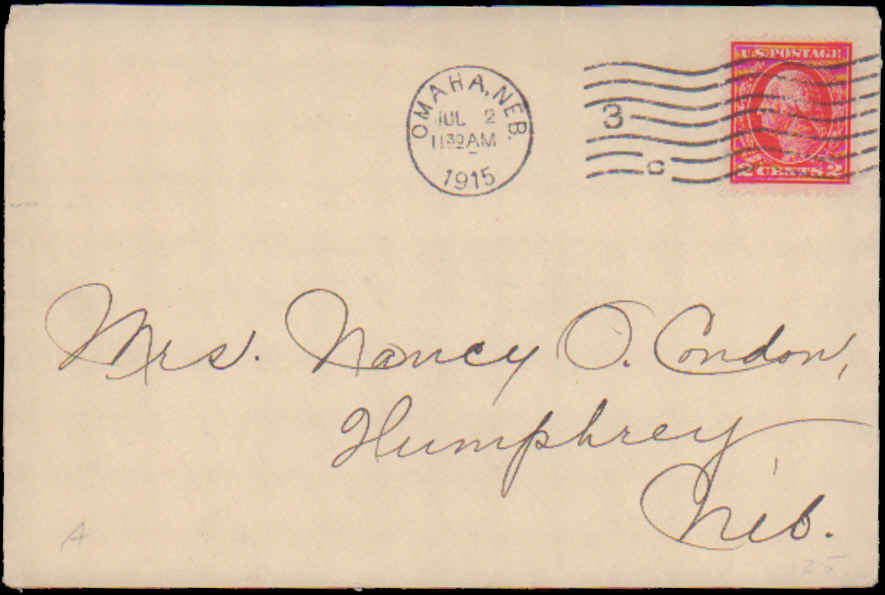 U.S. POSTAGE
2 CENTS 2
OMAHA, NEB.
JUL 2
11 30 AM
1915
3
C
Mrs. Nancy O. Condon,
Humphrey
Neb.
A
25